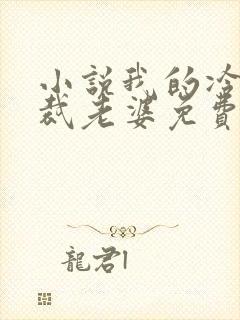 小説我的冷
裁老婆免費
龍君1